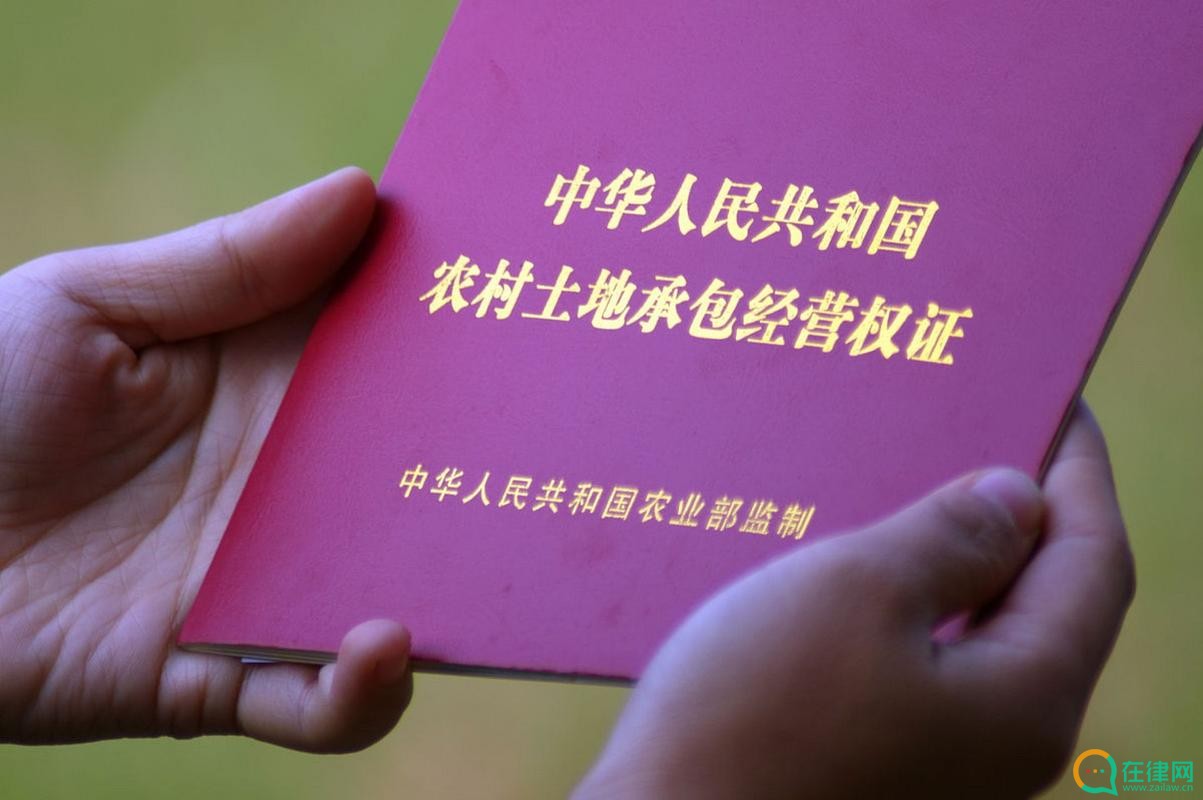 中华人民共和国
农村土地承包经营权证
中华人民共和国农业部监制
在律网
www.zailaw.cn